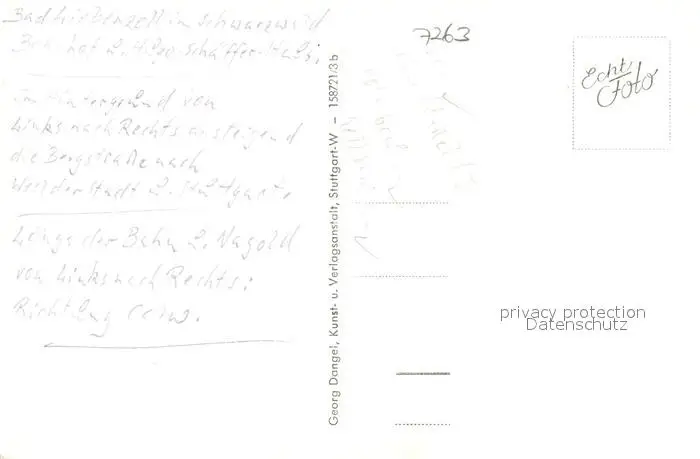 Bad Liebenzell im Schwarzwald
Bahnhof u. Schäffer-Haus.
Im Hintergrund von
Links nach Rechts ansteigend
die Bergstraße nach
Weilderstadt u. Stuttgart.
Längs der Bahn u. Nagold
von Links nach Rechts:
Richtung Calw.
Georg Dangel, Kunst- u. Verlagsanstalt, Stuttgart-W – 158721/3b
7263
Echt
Foto
privacy protection
Datenschutz